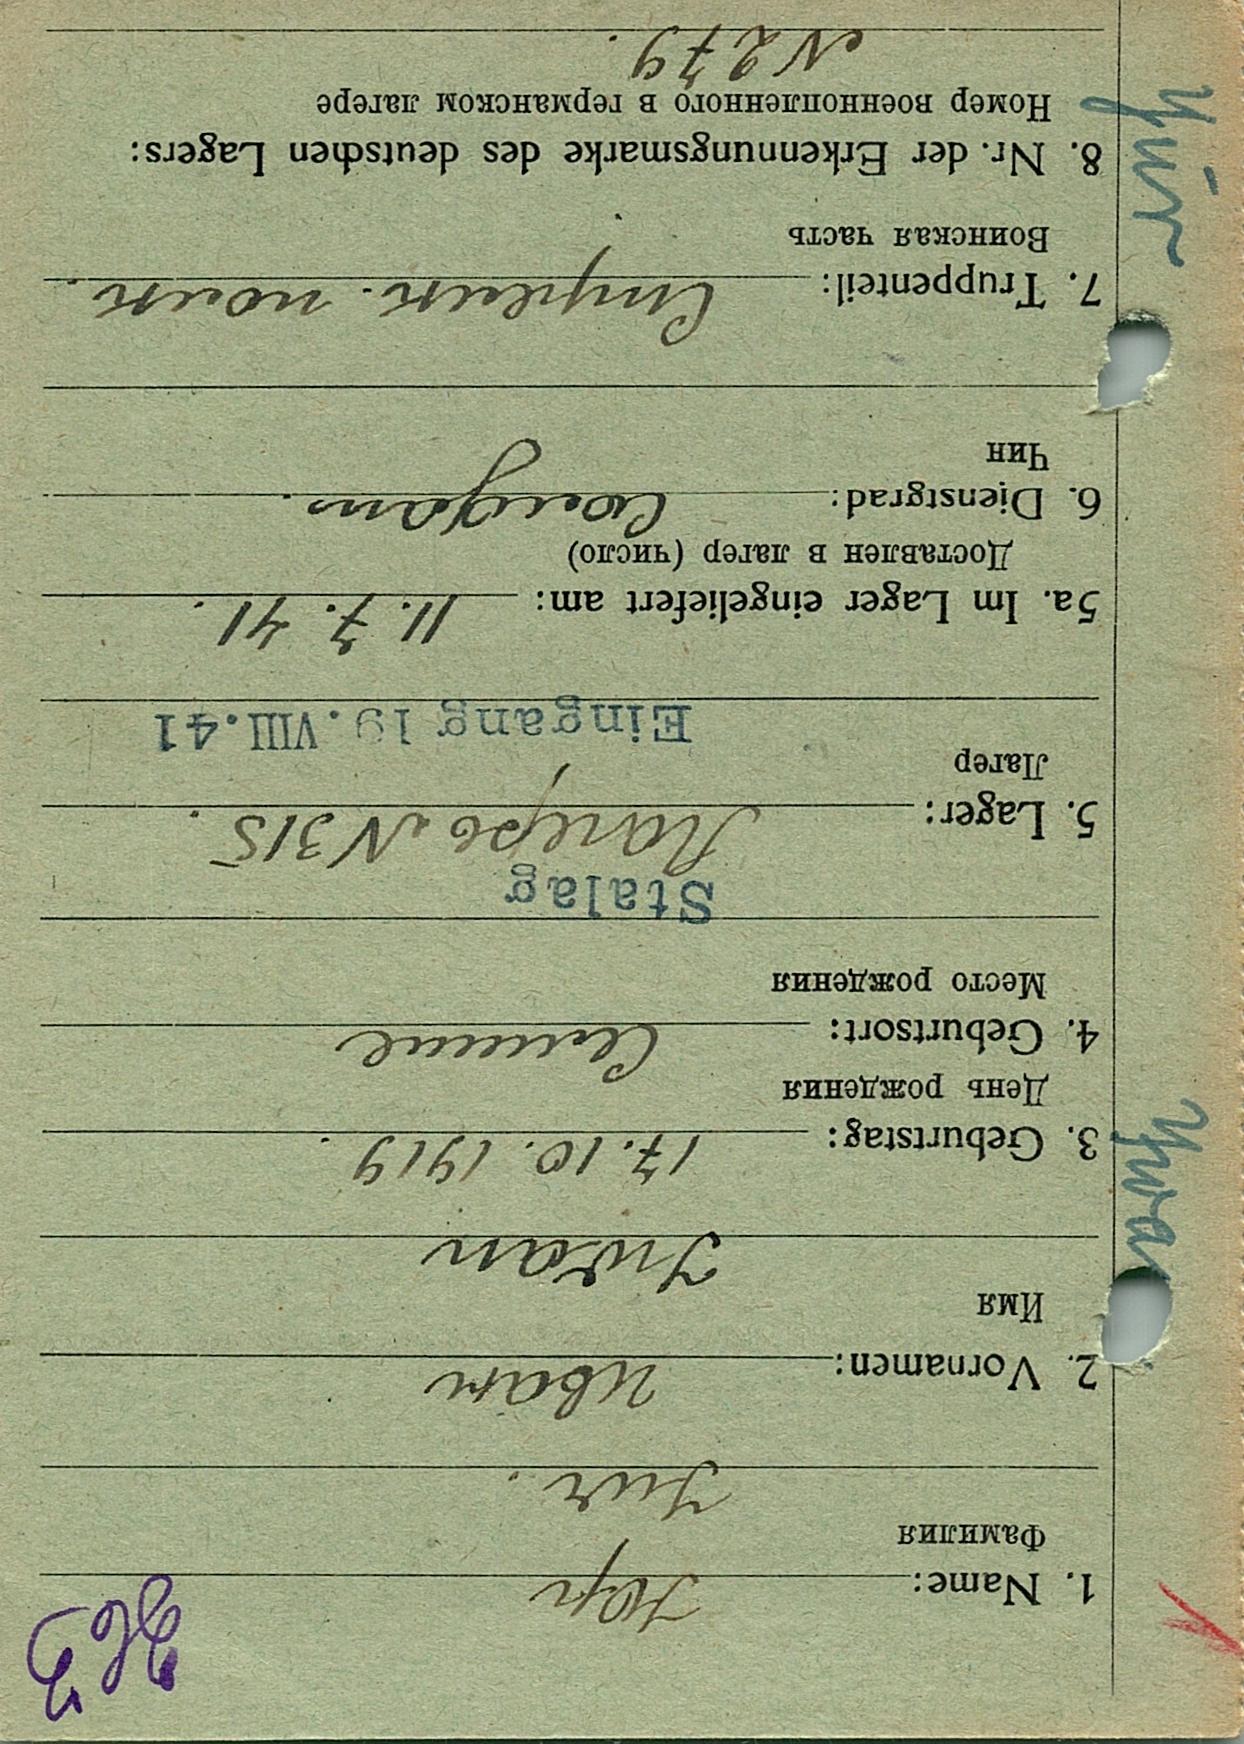 1. Name: Юр
Фамилия
Jur.
2. Vornamen: Иван
Имя
Jwan
3. Geburtstag: 17.10.1919.
День рождения
4. Geburtsort:
Место рождения
Stalag
5. Lager: Лагерь N 315.
Лагерь
Eingang 19.VIII.41
5a. Im Lager eingeliefert am: 11.7.41.
Доставлен в лагер (число)
6. Dienstgrad: Солдат.
Чин
7. Truppenteil: Стрелк. полк.
Воинская часть
8. Nr. der Erkennungsmarke des deutschen Lagers:
Номер военнопленного в германском лагере
N 279.
Jwan
Jür